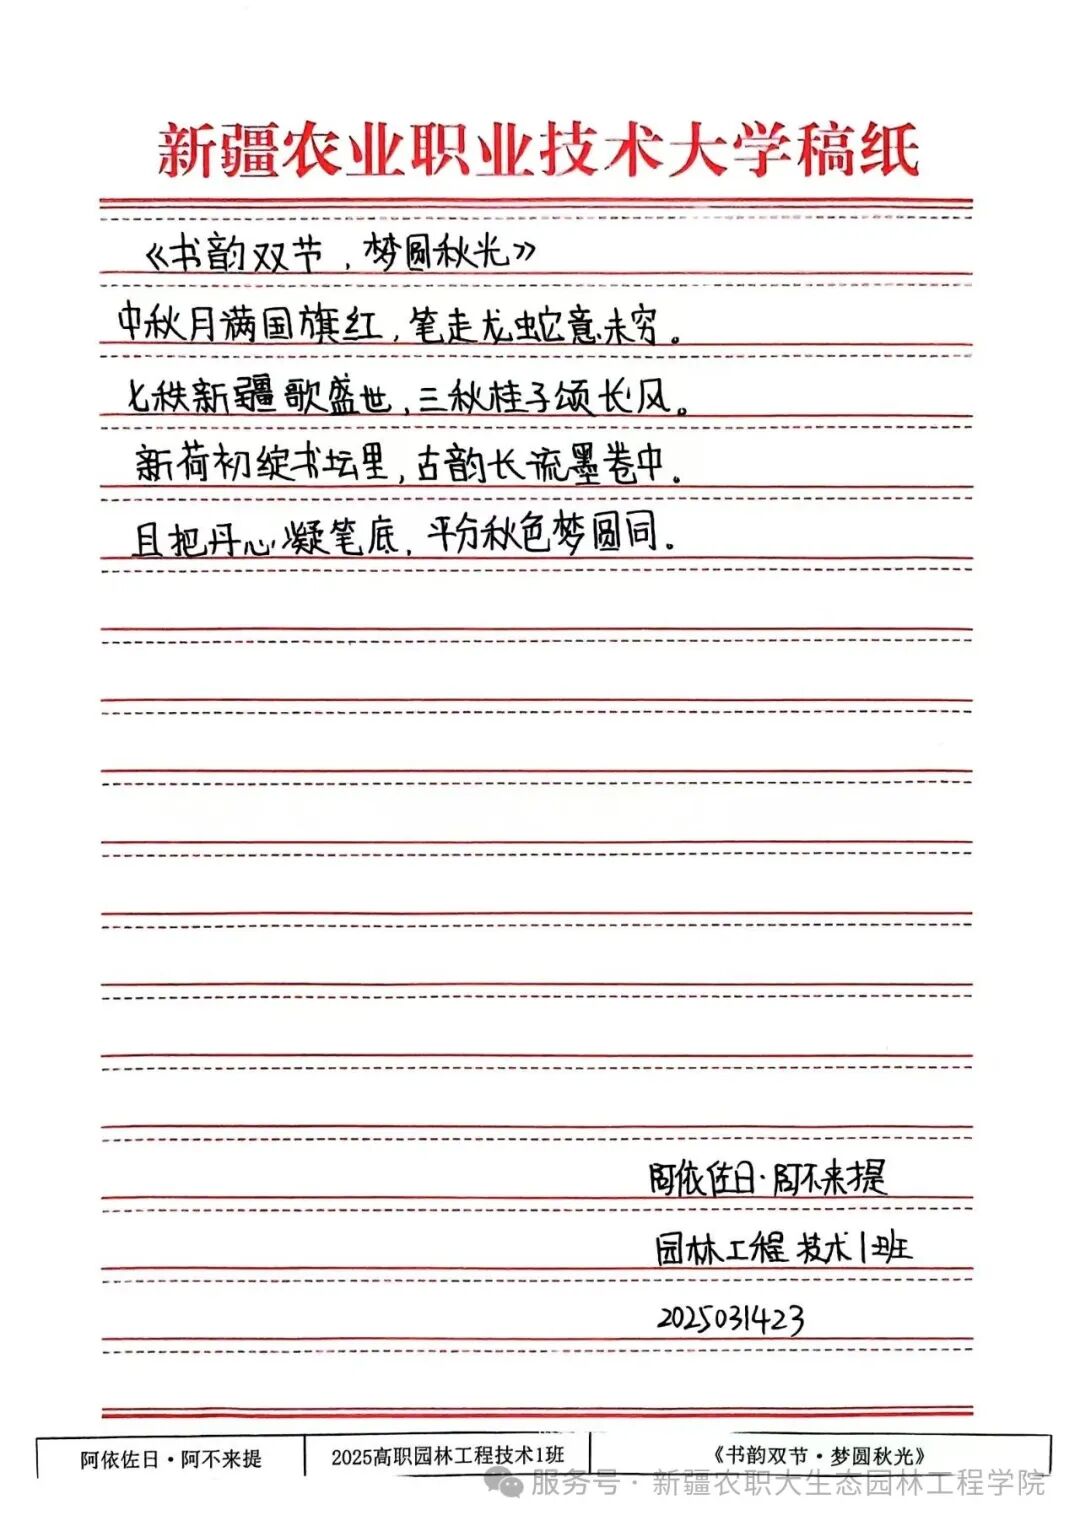 新疆农业职业技术大学稿纸
《书韵双节，梦圆秋光》
中秋月满国旗红，笔走龙蛇意未穷。
七秩新疆歌盛世，三秋桂子颂长风。
新荷初绽书坛里，古韵长流墨卷中。
且把丹心凝笔底，平分秋色梦圆同。
阿依佐日·阿不来提
园林工程技术1班
2025031423
阿依佐日·阿不来提 2025高职园林工程技术1班 《书韵双节·梦圆秋光》
服务号·新疆农职大生态园林工程学院